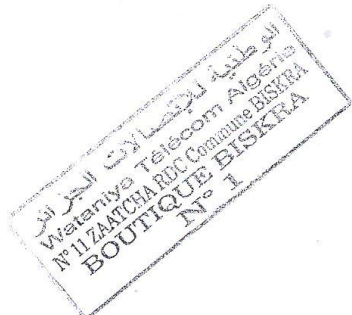 الوطنية للإتصالات الجزائر
Wataniya Télécom Algérie
N° 11 ZAATCHA RDC Commune BISKRA
BOUTIQUE BISKRA
N° 1